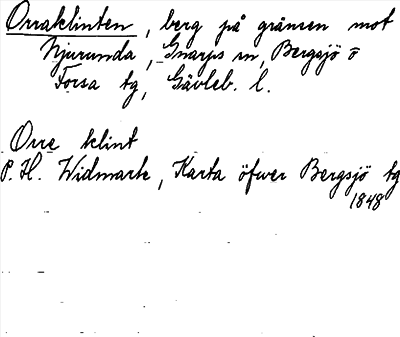 Orraklinten, berg på gränsen mot
Njurunda, Gnarps sn, Bergsjö o
Forsa tg, Gävleb. l.
Orre klint
P. H. Widmark, Karta öfwer Bergsjö tg
1848